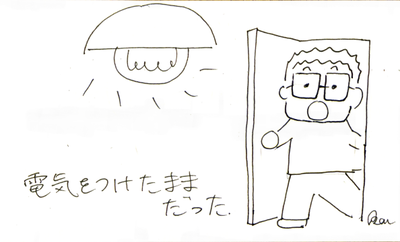 電気をつけたまま
だった.